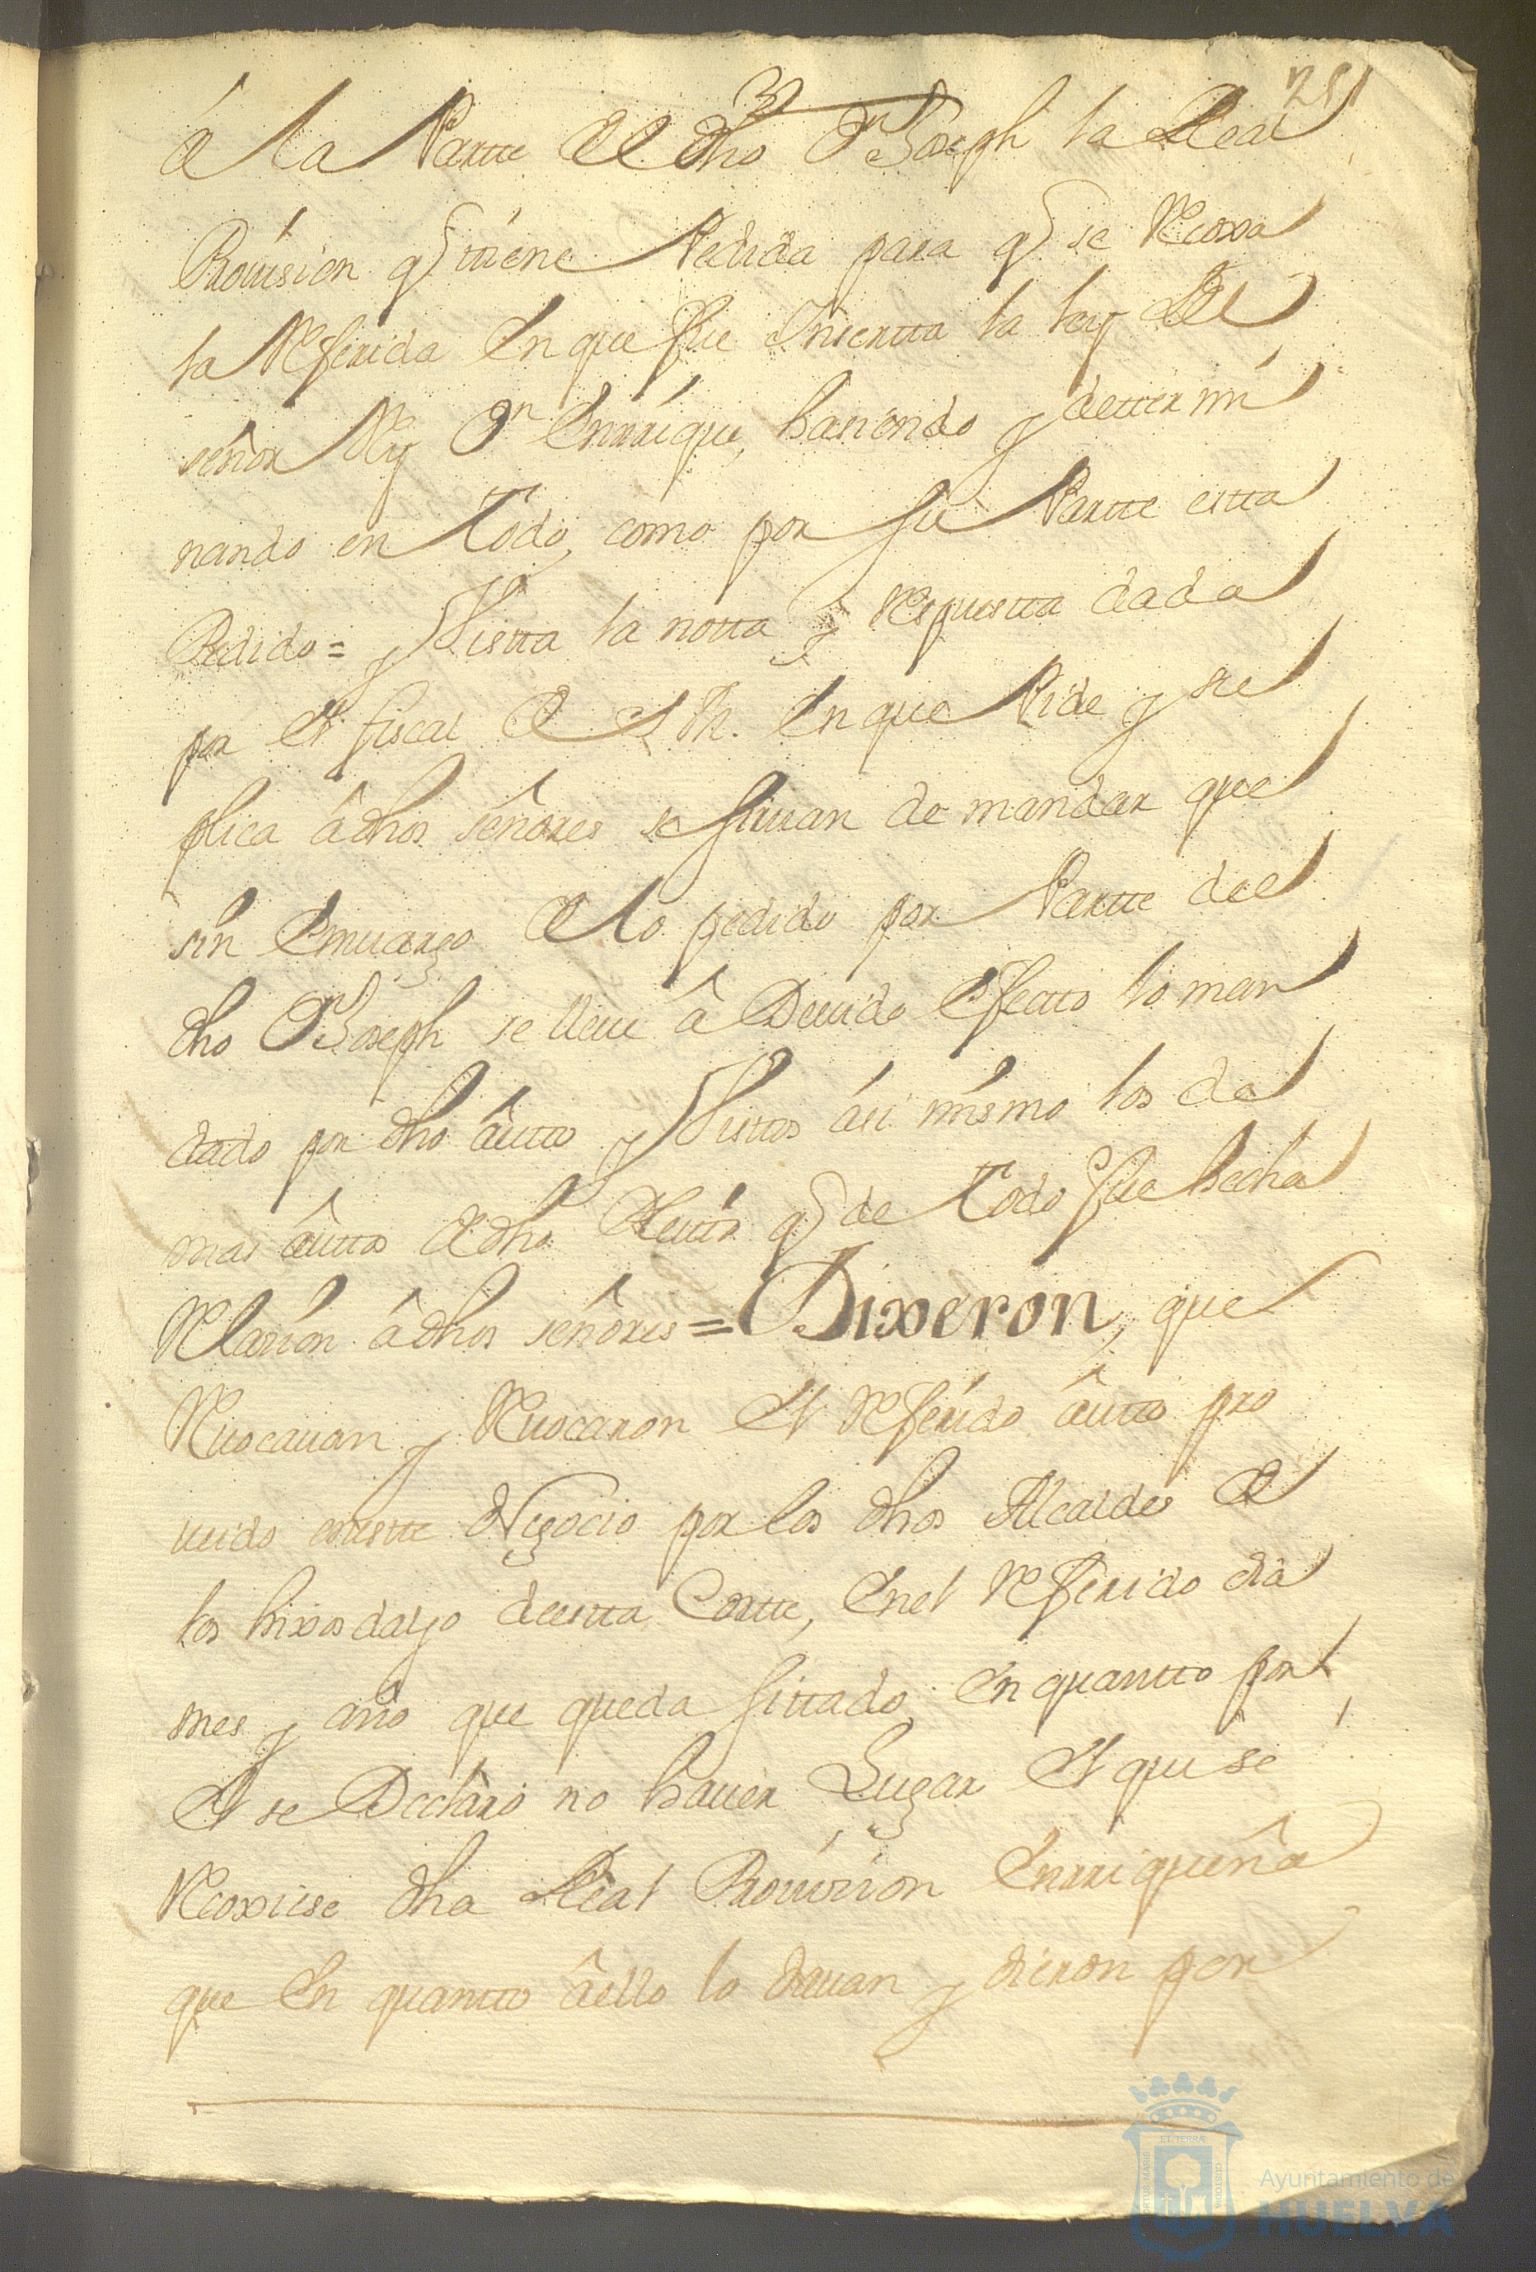 251
â la Partte de dho Dn Joseph la Real
Provision q tiene Pedida para q se Recoxa
la Referida En que fue Insertta la ley del
señor Rey Dn Enrrique, haciendo y dettermi
nando en Todo, como por su Partte estta
Pedido = y Vistta la notta y Respuestta dada
por el fiscal de S M. En que Pide y su
plica â dhos señores se siruan de mandar que
sin Emuargo de lo pedido por Partte del
dho Dn Joseph se lleue â Deuido Efectto lo man
dado por dho âutto y Visttos ási mismo los de
mas âuttos de dho Pleitto q de Todo fue hecha
Relazion â dhos señores = Dixeron, que
Reuocauan y Reuocaron el Referido âutto pro
ueido en estte Negocio por los dhos Alcaldes de
los hixosdalgo de estta Cortte, En el Referido dia
mes y año que queda sittado, En quantto por
el se Declaró no hauer Lugar el que se
Recoxiese dha Real Prouision Enrriqueña
que En quantto âello lo dauan y dieron por
Ayuntamiento de
HUELVA